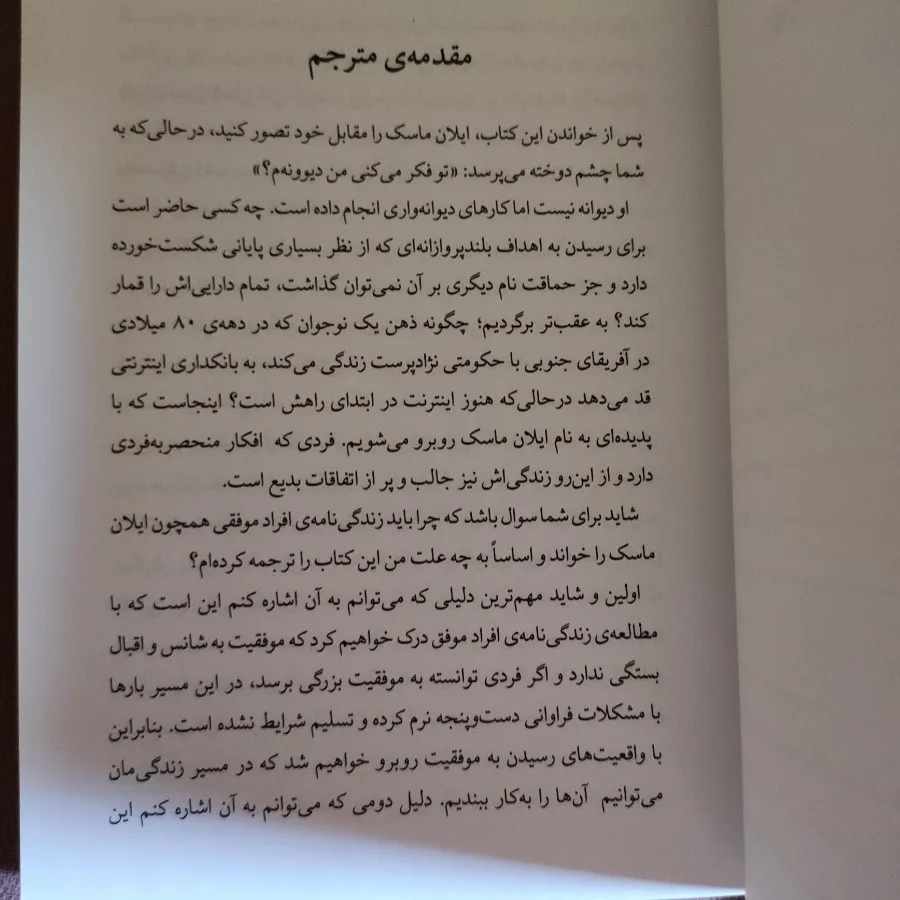 مقدمه‌ی مترجم
پس از خواندن این کتاب، ایلان ماسک را مقابل خود تصور کنید، درحالی‌که به
شما چشم دوخته می‌پرسد: «تو فکر می‌کنی من دیوونه‌م؟»
او دیوانه نیست اما کارهای دیوانه‌واری انجام داده است. چه کسی حاضر است
برای رسیدن به اهداف بلندپروازانه‌ای که از نظر بسیاری پایانی شکست‌خورده
دارد و جز حماقت نام دیگری بر آن نمی‌توان گذاشت، تمام دارایی‌اش را قمار
کند؟ به عقب‌تر برگردیم؛ چگونه ذهن یک نوجوان که در دهه‌ی ۸۰ میلادی
در آفریقای جنوبی با حکومتی نژادپرست زندگی می‌کند، به بانکداری اینترنتی
قد می‌دهد درحالی‌که هنوز اینترنت در ابتدای راهش است؟ اینجاست که با
پدیده‌ای به نام ایلان ماسک روبرو می‌شویم. فردی که افکار منحصربه‌فردی
دارد و از این‌رو زندگی‌اش نیز جالب و پر از اتفاقات بدیع است.
شاید برای شما سوال باشد که چرا باید زندگی‌نامه‌ی افراد موفقی همچون ایلان
ماسک را خواند و اساساً به چه علت من این کتاب را ترجمه کرده‌ام؟
اولین و شاید مهم‌ترین دلیلی که می‌توانم به آن اشاره کنم این است که با
مطالعه‌ی زندگی‌نامه‌ی افراد موفق درک خواهیم کرد که موفقیت به شانس و اقبال
بستگی ندارد و اگر فردی توانسته به موفقیت بزرگی برسد، در این مسیر بارها
با مشکلات فراوانی دست‌وپنجه نرم کرده و تسلیم شرایط نشده است. بنابراین
با واقعیت‌های رسیدن به موفقیت روبرو خواهیم شد که در مسیر زندگی‌مان
می‌توانیم آن‌ها را به‌کار ببندیم. دلیل دومی که می‌توانم به آن اشاره کنم این